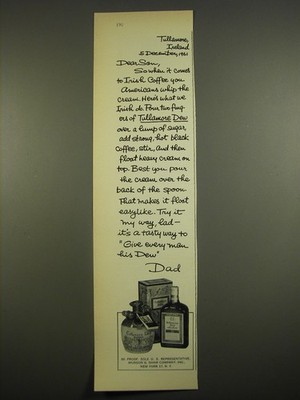 Tullamore,
Ireland
5 December, 1961
Dear Son,
So when it comes
to Irish Coffee you
Americans whip the
cream. Here's what we
Irish do. Four two fing-
ers of Tullamore Dew
over a lump of sugar,
add strong, hot black
coffee, stir, and then
float heavy cream on
top. Best you pour
the cream over the
back of the spoon.
That makes it float
easylike. Try it
my way, lad—
it's a tasty way to
"Give every man
his Dew"
Dad
86 PROOF SOLE U. S. REPRESENTATIVE,
NEW YORK 17, N. Y.